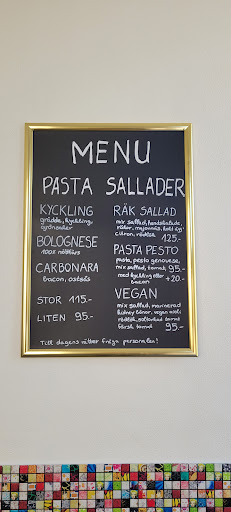 MENU
PASTA SALLADER
KYCKLING
grädde, kyckling,
sojonäser
BOLOGNESE
100% nötfärs
CARBONARA
bacon, ostsås
STOR 115.-
LITEN 95.-
RÄK SALLAD
mix sallad, handskalade
räkor, majonnäs, kokt ägg
citron, rödlök 125.-
PASTA PESTO
pasta, pesto genovese,
mix sallad, tomat, 95.-
med kyckling eller
bacon +20.-
VEGAN
mix sallad, marinerad
kidney bönor, vegan aioli
rödlök, soltorkad tomat
färsk tomat 95.-
Till dagens rätter fråga personalen!